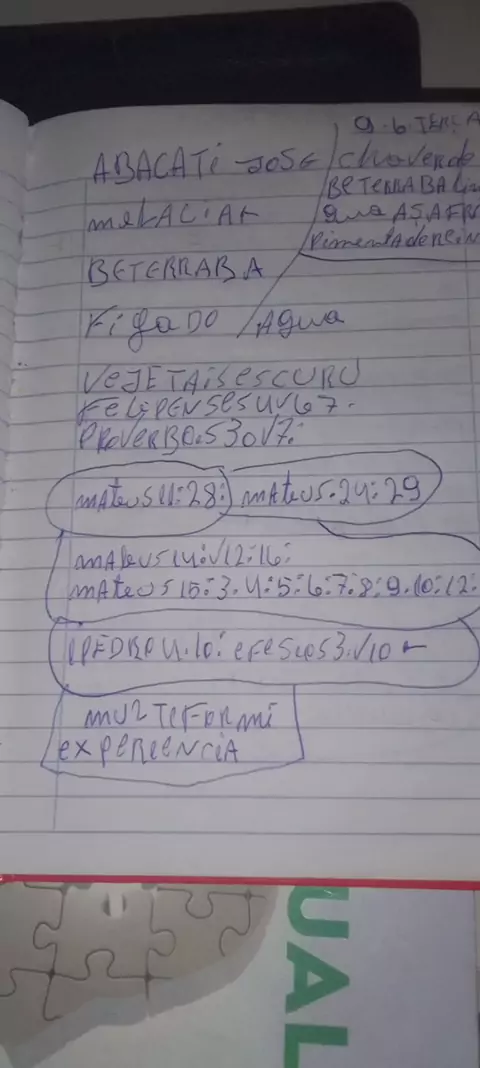 ABACATI JOSE
9.6.TERÇA
chaverde
BETERRABA
PimentadeREIN
MELACIAA
BETERRABA
FigADO / AguA
VEJETAISESCURU
FELIPENSES4V67.
PROVERBO.S30V7:
mAteus11:28: mAteus.24:29
mAteus14:V12:16:
mAteus15:3.4:5:6:7:8:9.10:12:
1PEDRO4.10: eFeSios3.V10
muLTeFoRmi
exPeReeNCiA
UAL